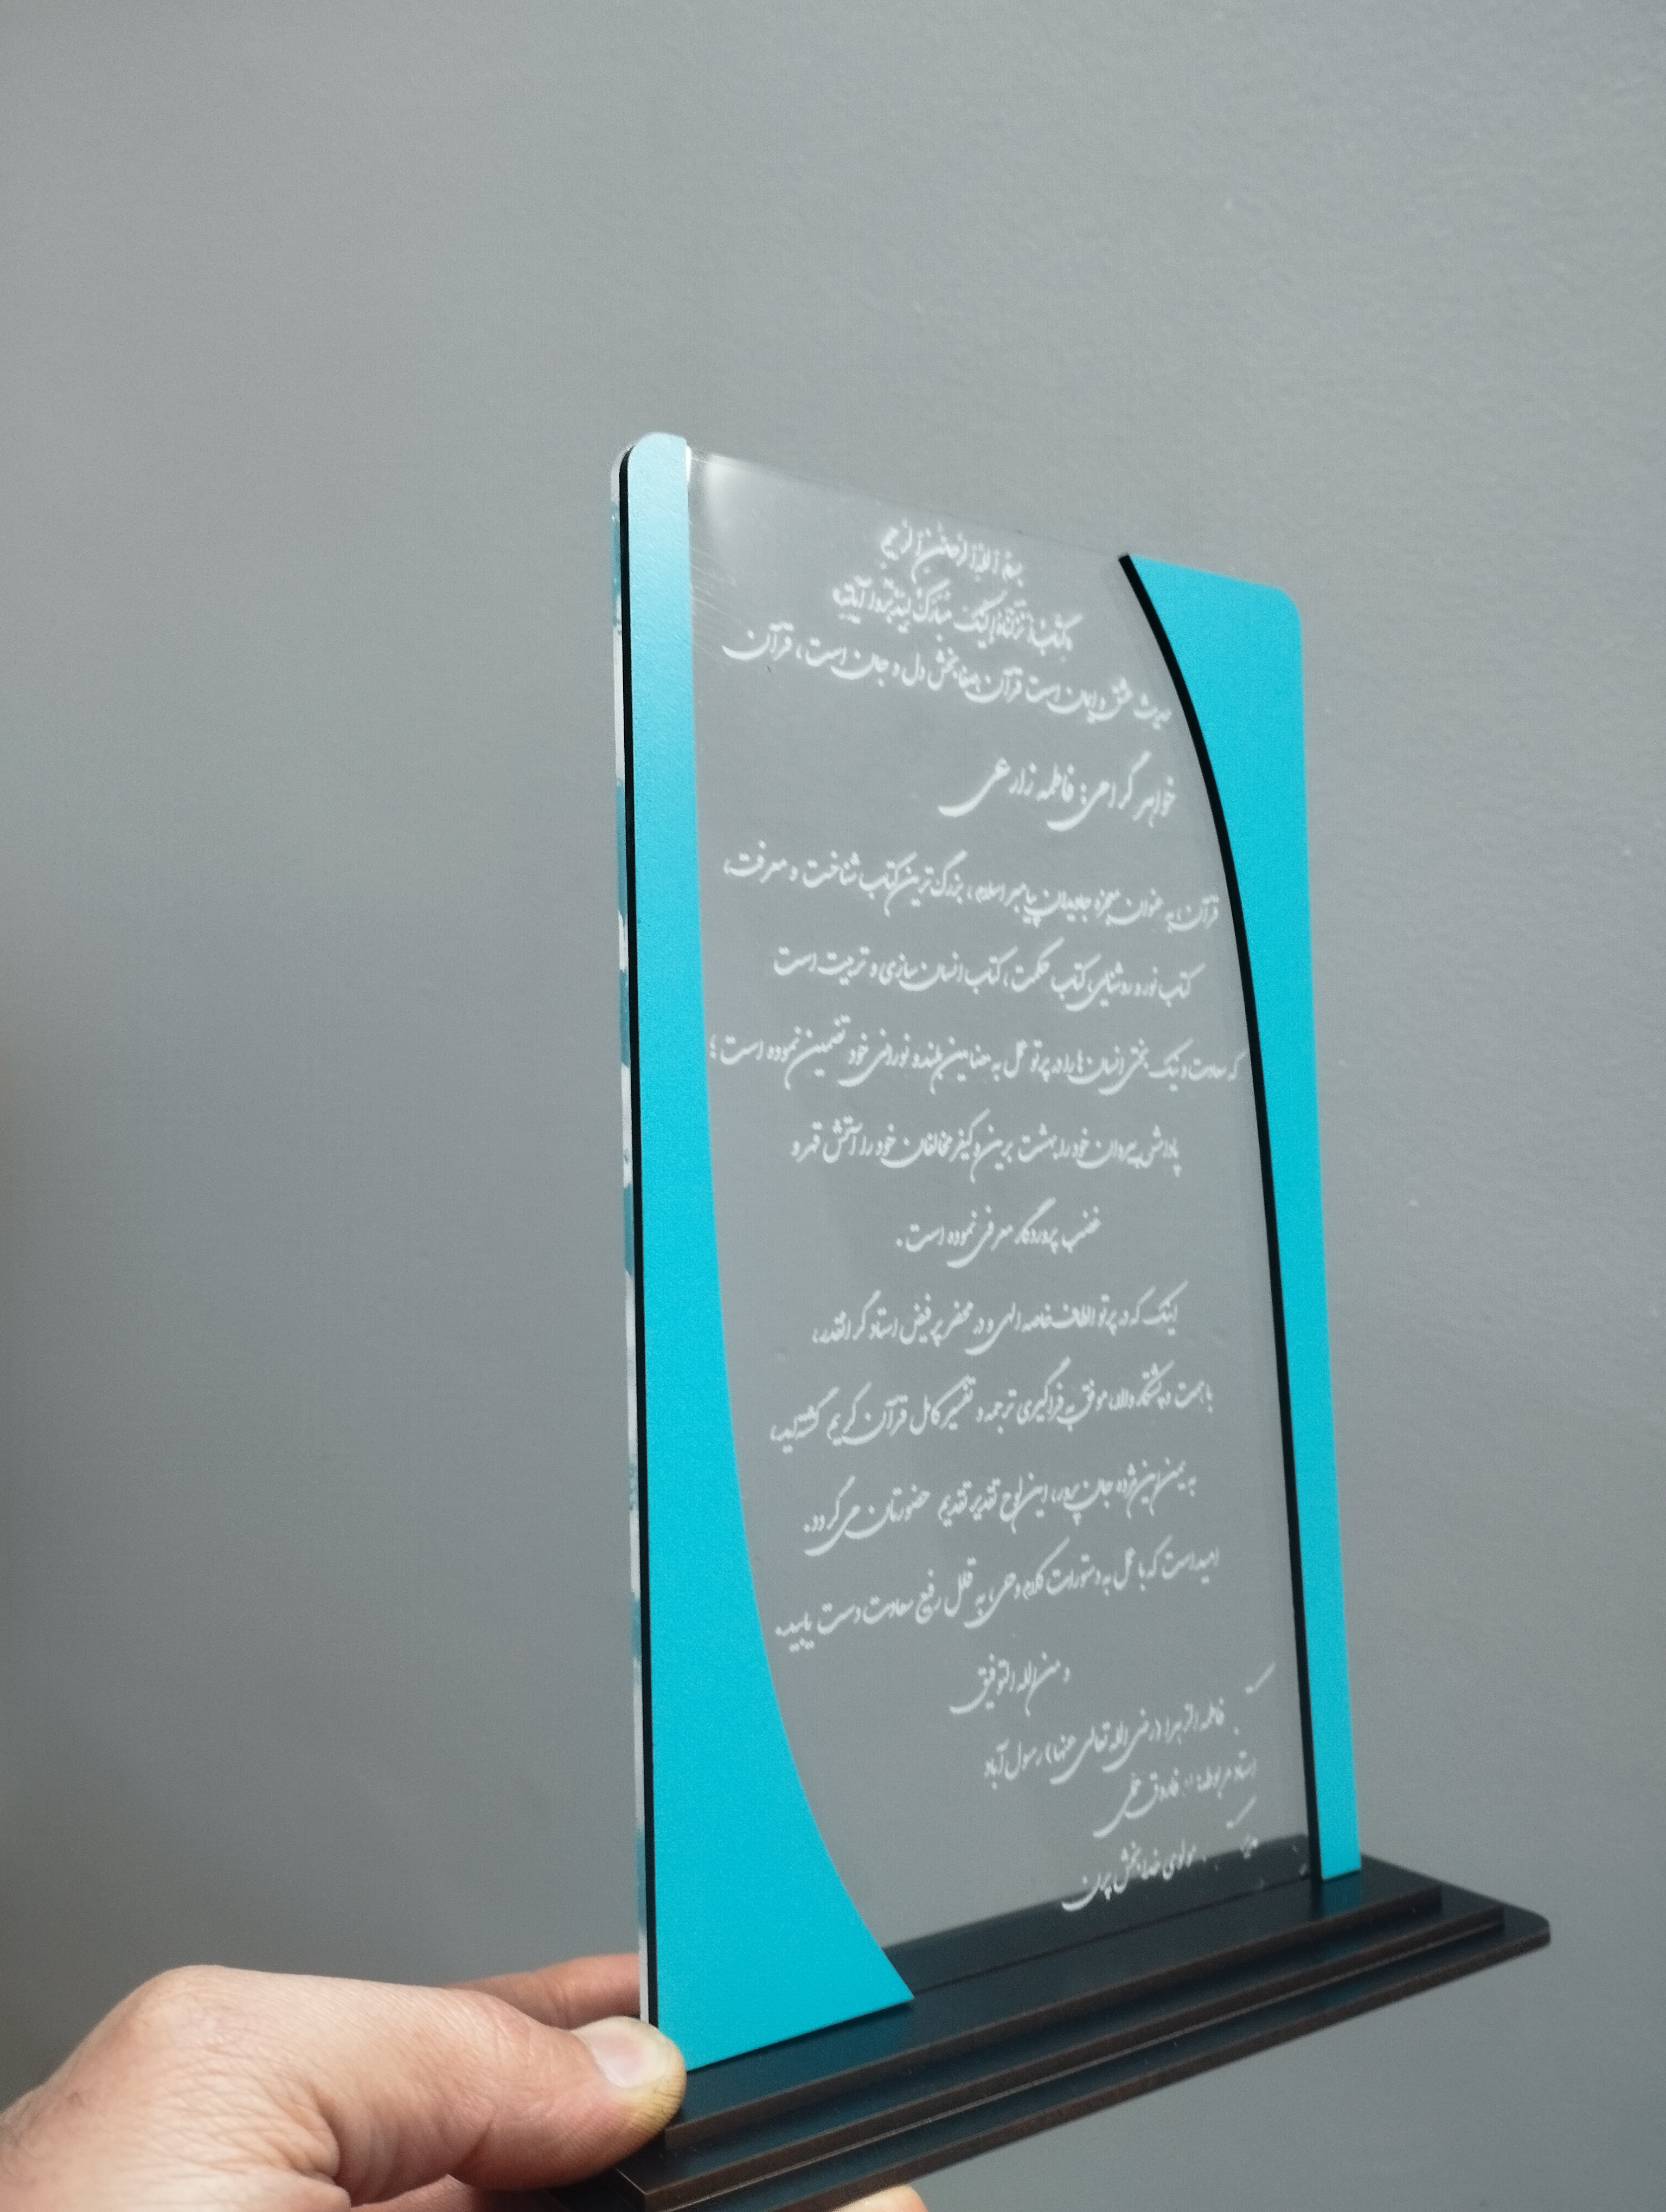 بسم الله الرحمن الرحیم
كِتَابٌ أَنزَلْنَاهُ إِلَيْكَ مُبَارَكٌ لِّيَدَّبَّرُوا آيَاتِهِ
حدیث عشق و ایمان است قرآن، صفابخش دل و جان است، قرآن
خواهر گرامی: فاطمه زارعی
قرآن، به عنوان معجزه جاویدان پیامبر اسلام، بزرگ‌ترین کتاب شناخت و معرفت،
کتاب نور و روشنایی، کتاب حکمت، کتاب انسان سازی و تربیت است
که سعادت و نیک بختی انسان‌ها را در پرتو عمل به مضامین بلند و نورانی خود تضمین نموده است؛
پاداش پیروان خود را بهشت برین و کیفر مخالفان خود را آتش قهر و
غضب پروردگار معرفی نموده است.
اینک که در پرتو الطاف خاصه الهی و در محضر پرفیض استاد گرانقدر،
با همت و پشتکار والا، موفق به فراگیری ترجمه و تفسیر کامل قرآن کریم گشته‌اید،
به یمن این مژده جان پرور، این لوح تقدیر تقدیم حضورتان می‌گردد.
امید است که با عمل به دستورات کلام وحی، به قلل رفیع سعادت دست یابید.
و من الله التوفیق
فاطمه الزهرا (رضی الله تعالی عنها) رسول آباد
استاد مربوطه: فاروق
مولوی خدابخش